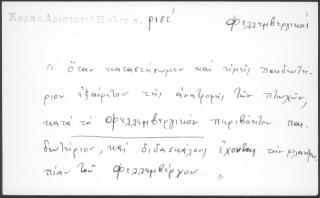 Κοραη Αριστοτελ Πολιτ σ. ριστ´ φελλεμβεργικός
" ὅταν καταστήσωμεν καὶ ἡμεῖς παιδευτή-
ριον ἐξαίρετον τῆς ἀνατροφῆς τῶν πτωχῶν,
κατὰ τὸ Φελλεμβεργικὸν περιβόητον παι-
δευτήριον, καὶ διδασκάλους ἔχοντας τὴν φιλανθρω-
πίαν τοῦ Φελλεμβέργου. "